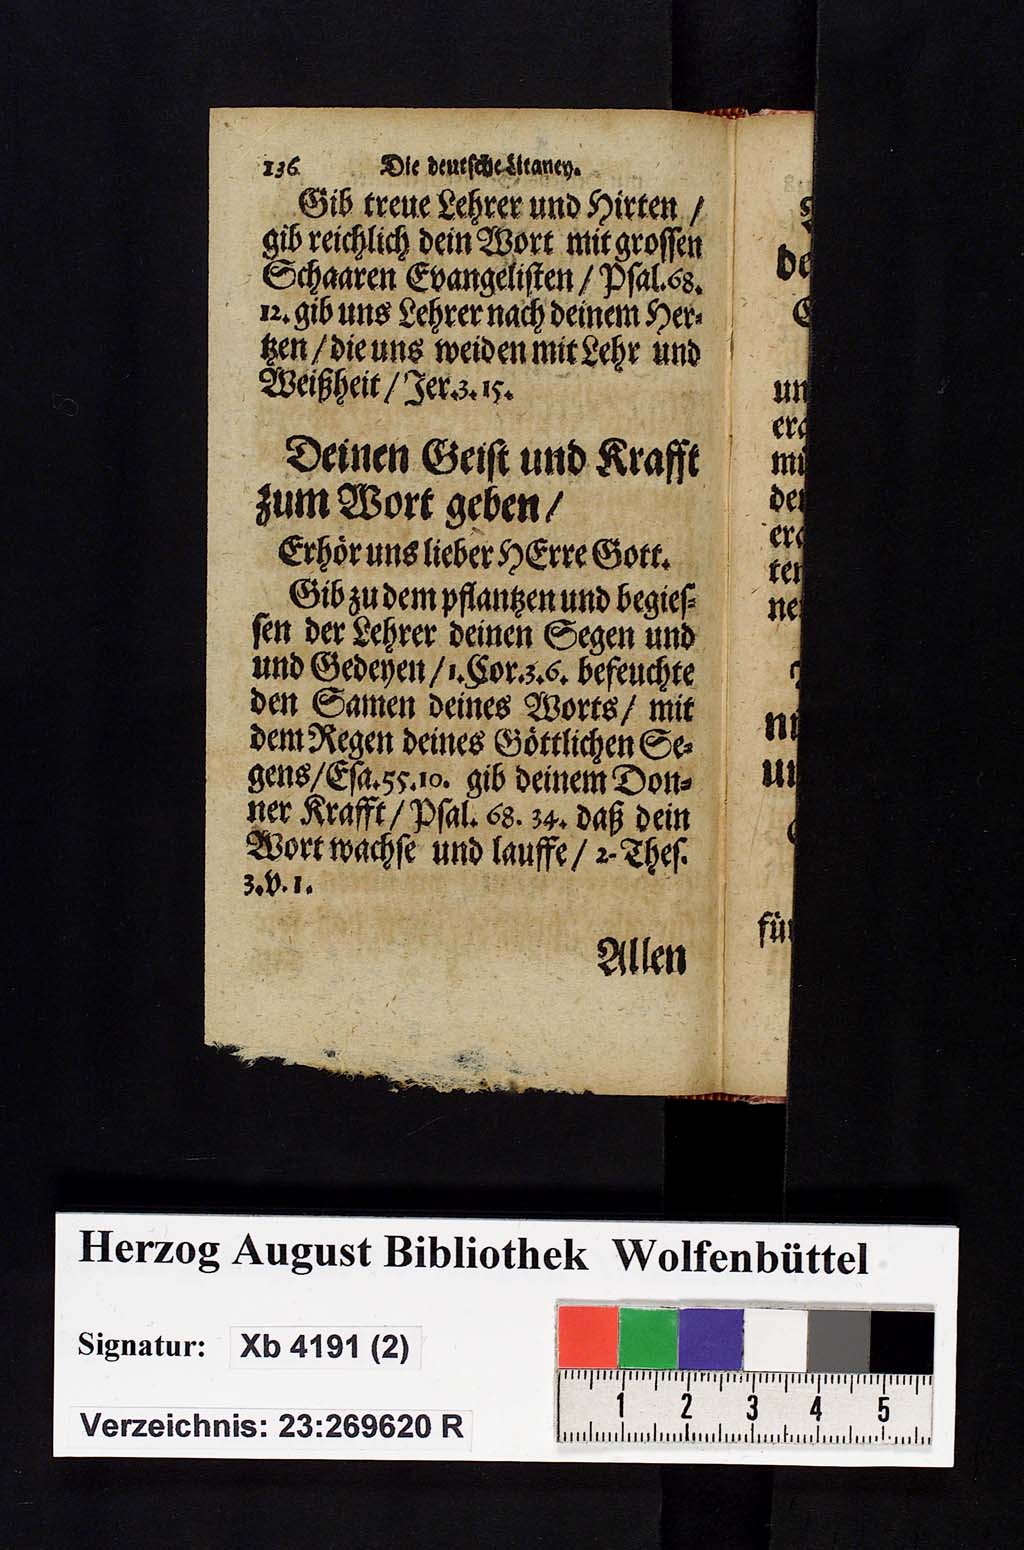 136 Die deutsche Litaney.
Gib treue Lehrer und Hirten /
gib reichlich dein Wort mit grossen
Schaaren Evangelisten / Psal. 68.
12. gib uns Lehrer nach deinem Her-
tzen / die uns weiden mit Lehr und
Weißheit / Jer. 3. 15.
Deinen Geist und Krafft
zum Wort geben /
Erhör uns lieber HErre Gott.
Gib zu dem pflantzen und begies-
sen der Lehrer deinen Segen und
und Gedeyen / 1. Cor. 3. 6. befeuchte
den Samen deines Worts / mit
dem Regen deines Göttlichen Se-
gens / Esa. 55. 10. gib deinem Don-
ner Krafft / Psal. 68. 34. daß dein
Wort wachse und lauffe / 2. Thes.
3. v. 1.
Allen
Herzog August Bibliothek Wolfenbüttel
Signatur: Xb 4191 (2)
Verzeichnis: 23:269620 R
1 2 3 4 5